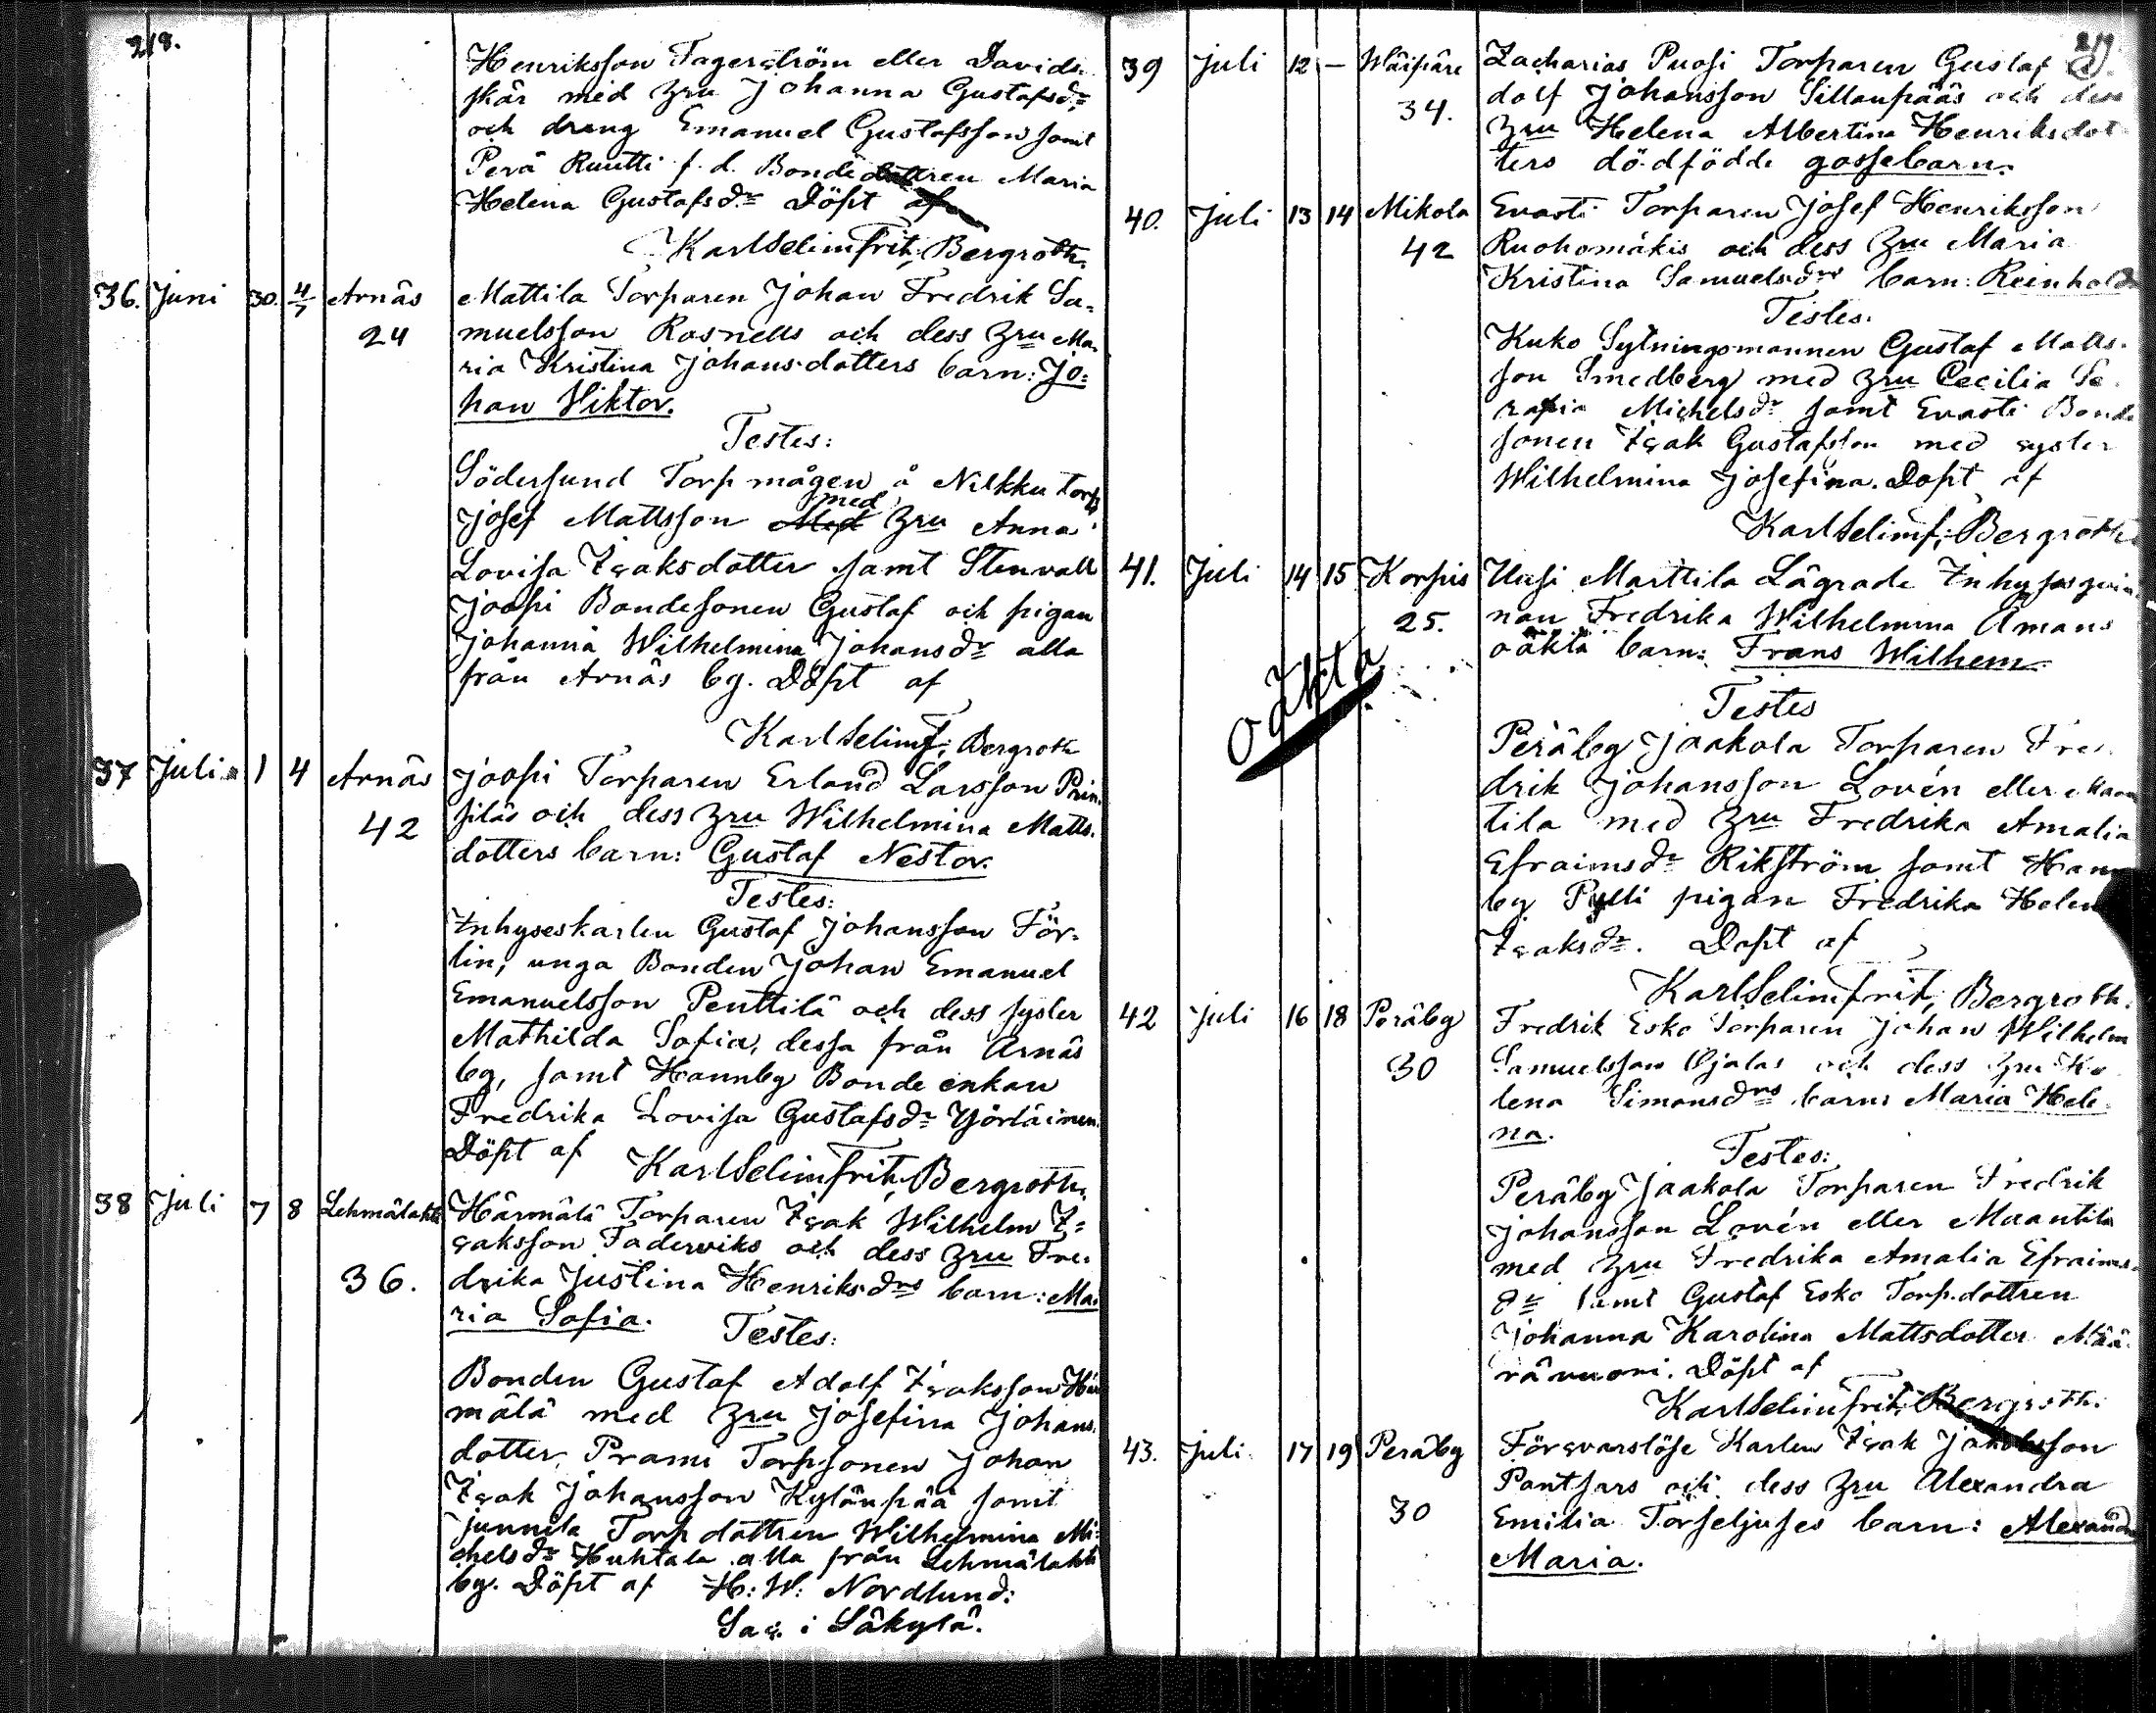 218.
Henriksson Fagerström eller Davids-
skär med hru Johanna Gustafsdr
och dreng Emanuel Gustafsson samt
Perä Ruutti f. d. Bonde dottren Maria
Helena Gustafsdr. Döpt af
Karl Selim Frit. Bergroth.
36. Juni 30. 4/7 Arnäs Mattila Torparen Johan Fredrik Sa-
24 muelsson Rosnells och dess hru Ma-
ria Kristina Johansdotters barn: Jo-
han Viktor.
Testes:
Södersund Torp mågen å Nilkku torp
Josef Mattsson med hru Anna
Lovisa Isaksdotter samt Stenvall
Joopi Bondesonen Gustaf och pigan
Johanna Wilhelmina Johansdr alla
från Arnäs by. Döpt af
Karl Selim F. Bergroth
37 Juli 1 4 Arnäs Joopi Torparen Erland Larsson Prin-
42 siläs och dess hru Wilhelmina Matts-
dotters barn: Gustaf Nestor.
Testes:
Inhyseskarlen Gustaf Johansson För-
lin, unga Bonden Johan Emanuel
Emanuelsson Penttilä och dess syster
Mathilda Sofia, dessa från Arnäs
by, samt Hannby Bonde enkan
Fredrika Lovisa Gustafsdr Yörläinen.
Döpt af Karl Selim Frit. Bergroth.
38 Juli 7 8 Lehmälahti Härmälä Torparen Isak Wilhelm I-
saksson Faderviks och dess hru Fre-
36. drika Justina Henriksdrs barn: Ma-
ria Sofia. Testes:
Bonden Gustaf Adolf Isaksson Här
mälä med hru Josefina Johans-
dotter, Prami Torpsonen Johan
Isak Johansson Kylänpää samt
Junnila Torp dottren Wilhelmina Mi-
chelsdr Huhtala alla från Lehmälahti
by. Döpt af H: W: Nordlund:
Sac. i Säkylä.
219.
39 Juli 12 – Wäipäre Zacharias Puosi Torparen Gustaf
34. dolf Johansson Sillanpääs och dess
hru Helena Albertina Henriksdot
ters dödfödde gossebarn.
40. Juli 13 14 Mikola Evasti Torparen Josef Henriksson
42 Ruohomäkis och dess hru Maria
Kristina Samuelsdrs barn: Reinhold
Testes.
Kuko Sytningsmannen Gustaf Matts-
son Smedberg med hru Cecilia Se-
rafia Michelsdr samt Evasti Bonde
sonen Isak Gustafsson med syster
Wilhelmina Josefina. Döpt af
Karl Selim F. Bergroth.
41. Juli 14 15 Korpis Uusi Marttila Lägrade Inhysesqvin
25. nan Fredrika Wilhelmina Åmans
oäkta oäkta barn: Frans Wilhem
Testes
Peräby Jaakola Torparen Fre-
drik Johansson Lovén eller Maan
tila med hru Fredrika Amalia
Efraimsdr Rikström samt Hann
by Pylli pigan Fredrika Helen
Isaksdr. Döpt af
Karl Selim Frit. Bergroth.
42 Juli 16 18 Peräby Fredrik Esko Torparen Johan Wilhelm
30 Samuelsson Ojalas och dess hru He
lena Simonsdrs barn: Maria Hele-
na.
Testes:
Peräby Jaakola Torparen Fredrik
Johansson Lovén eller Maantila
med hru Fredrika Amalia Efraims-
dr samt Gustaf Esko Torp.dottren
Johanna Karolina Mattsdotter Mää-
rävuori. Döpt af
Karl Selim Frit. Bergroth.
43. Juli 17 19 Peräby Försvarslöse Karlen Isak Jakobsson
30 Pantsars och dess hru Alexandra
Emilia Torseljuses barn: Alexandra
Maria.